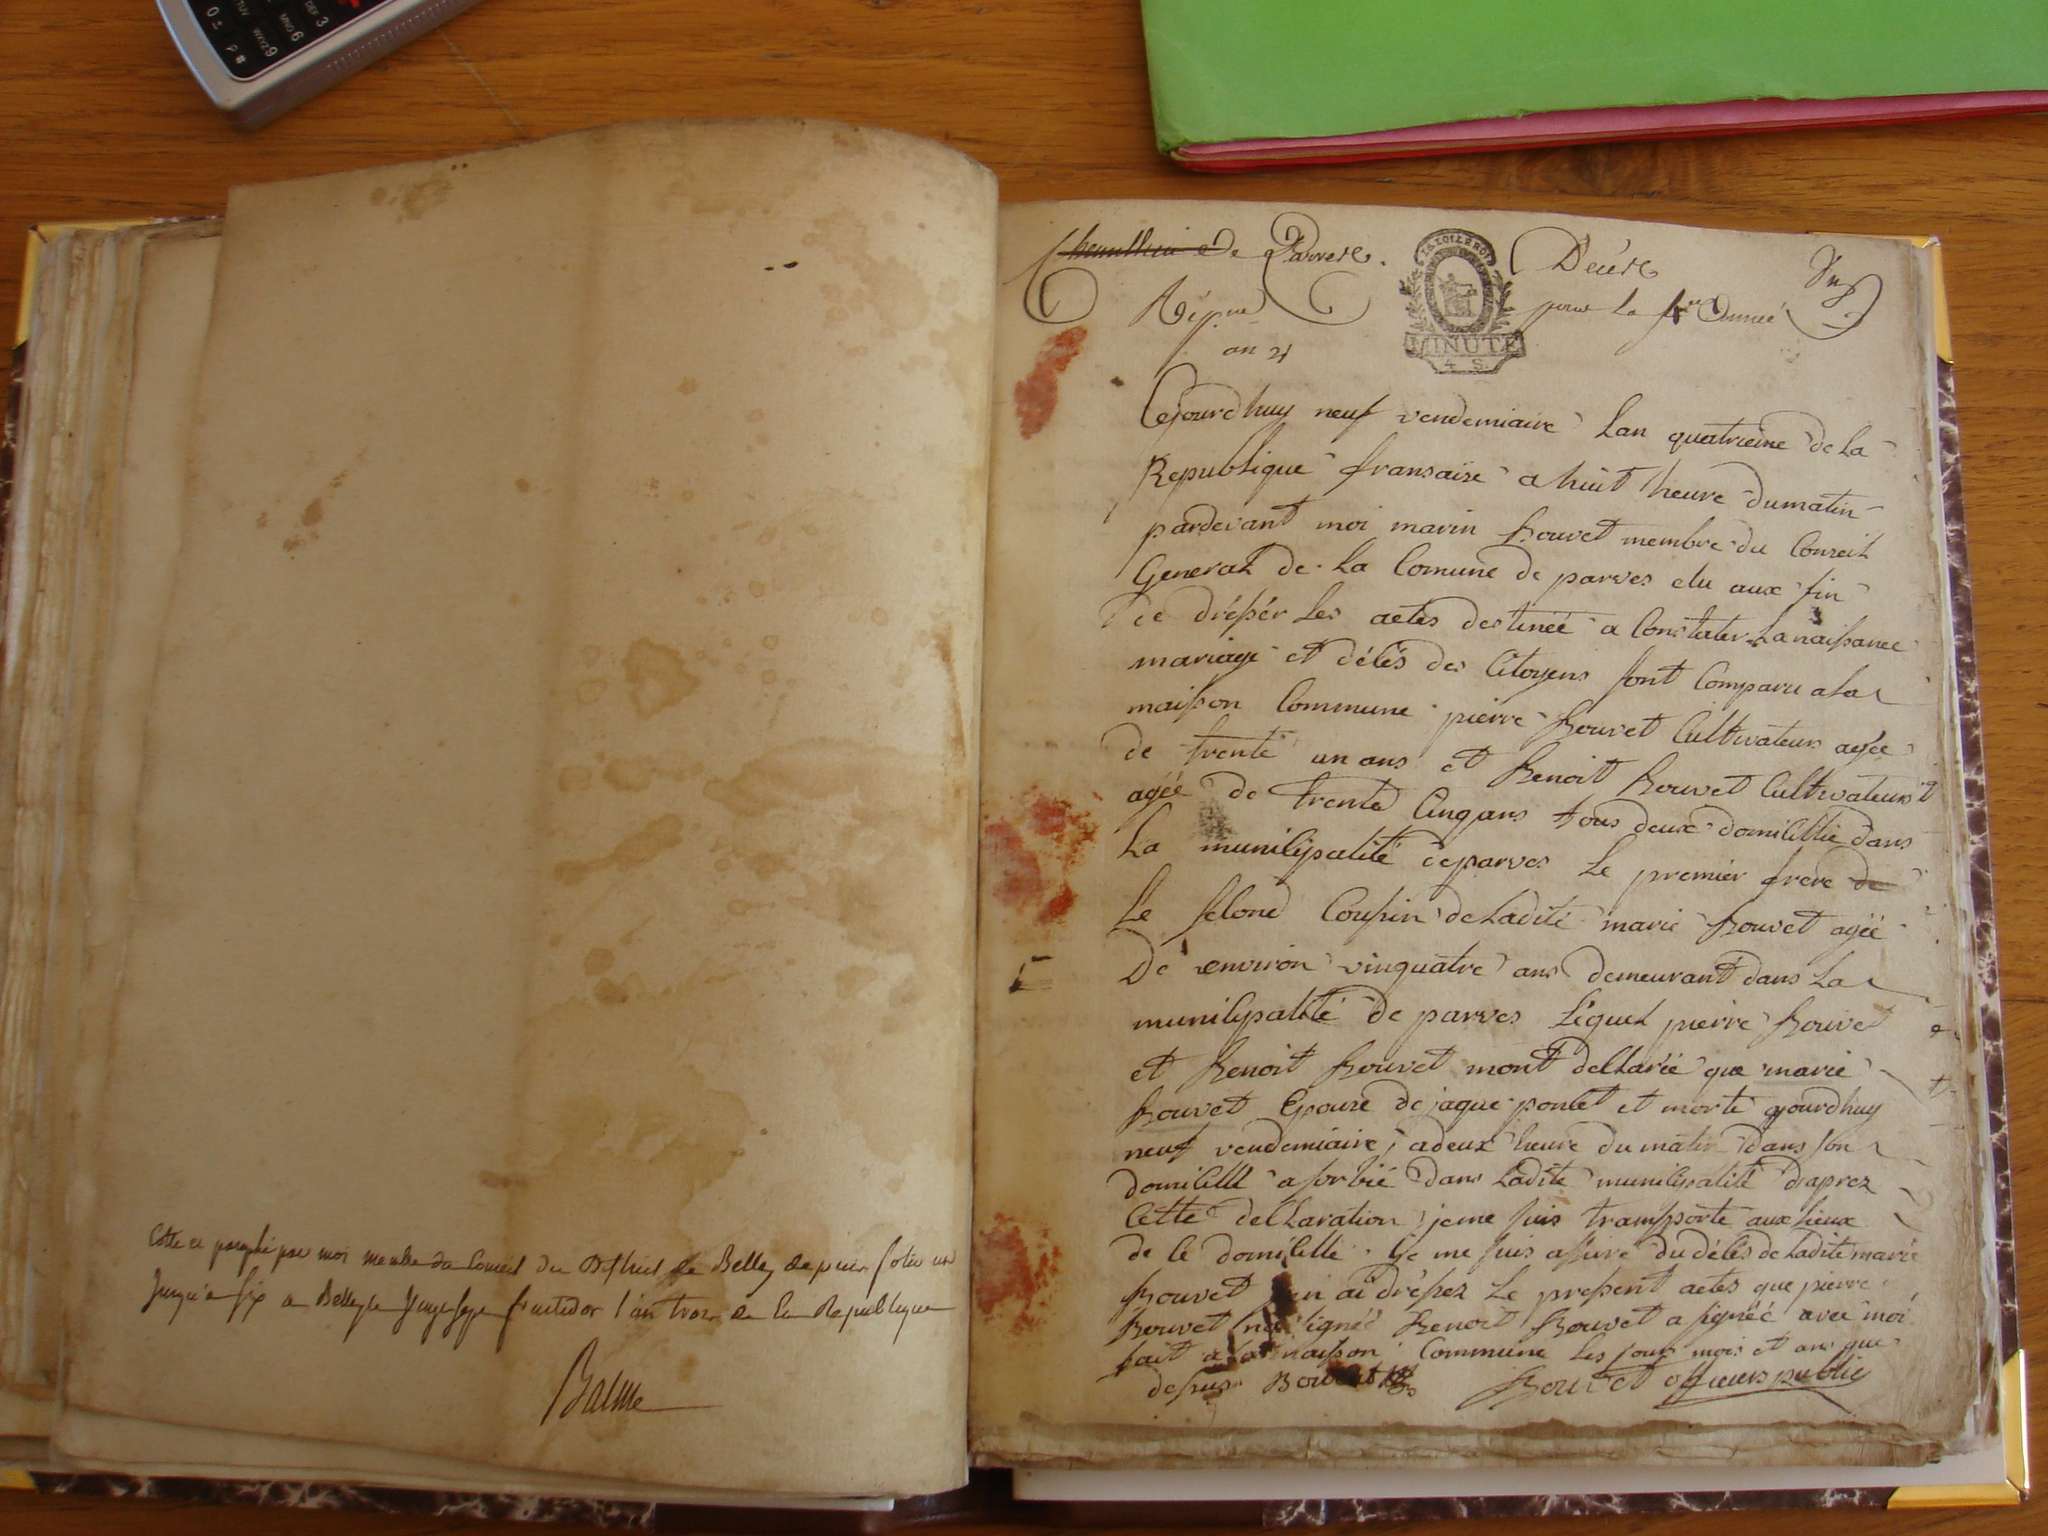 Cotté et paraphé par moi membre du Conseil du District de Belley depuis folio un
jusqu'a six a Belley le fructidor l'an trois de la Republique
Balme
de Parves. Décès
pour la 4 Année
an 4
LA LOI LE ROI
MINUTE
4 S.
Cejourdhuy neuf vendemiaire Lan quatrieme de La
Republique fransaise a huit heure dumatin
pardevant moi marin Bouvet membre du Conseil
General de La Comune de parves elu aux fin
de dréssér Les actes destinéé a Constater Lanaissance
mariage et décés des Citoyens sont Comparu a La
maisson Commune pierre Bouvet Cultivateurs agéé
de trente un ans et Benoit Bouvet Cultivateurs
agéé de trente Cinqans tous deux domicillie dans
La municipalité deparves Le premier frere de
Le second Coussin de Ladite marie Bouvet agéé
De environ vinquatre ans demeurant dans La
municipalité de parves Lequel pierre Bouvet
et Benoit Bouvet mont declaréé que marie
Bouvet Epouse de jaque poncet et morte ajourdhuy
neuf vendemiaire, a deux heure du matin dans son
domicille a sorbié dans Ladite municipalité daprez
Cette declaration jeme suis transsporte aux Lieux
de le domicille. Je me suis assuré du décés de Ladite marie
Bouvet jen ai dréssez Le pressent actes que pierre
Bouvet na signéé Benoit Bouvet a signéé avec moi
fait a La maisson Commune Les jour mois et ans que
dessus Bouvet Bouvet officiers public